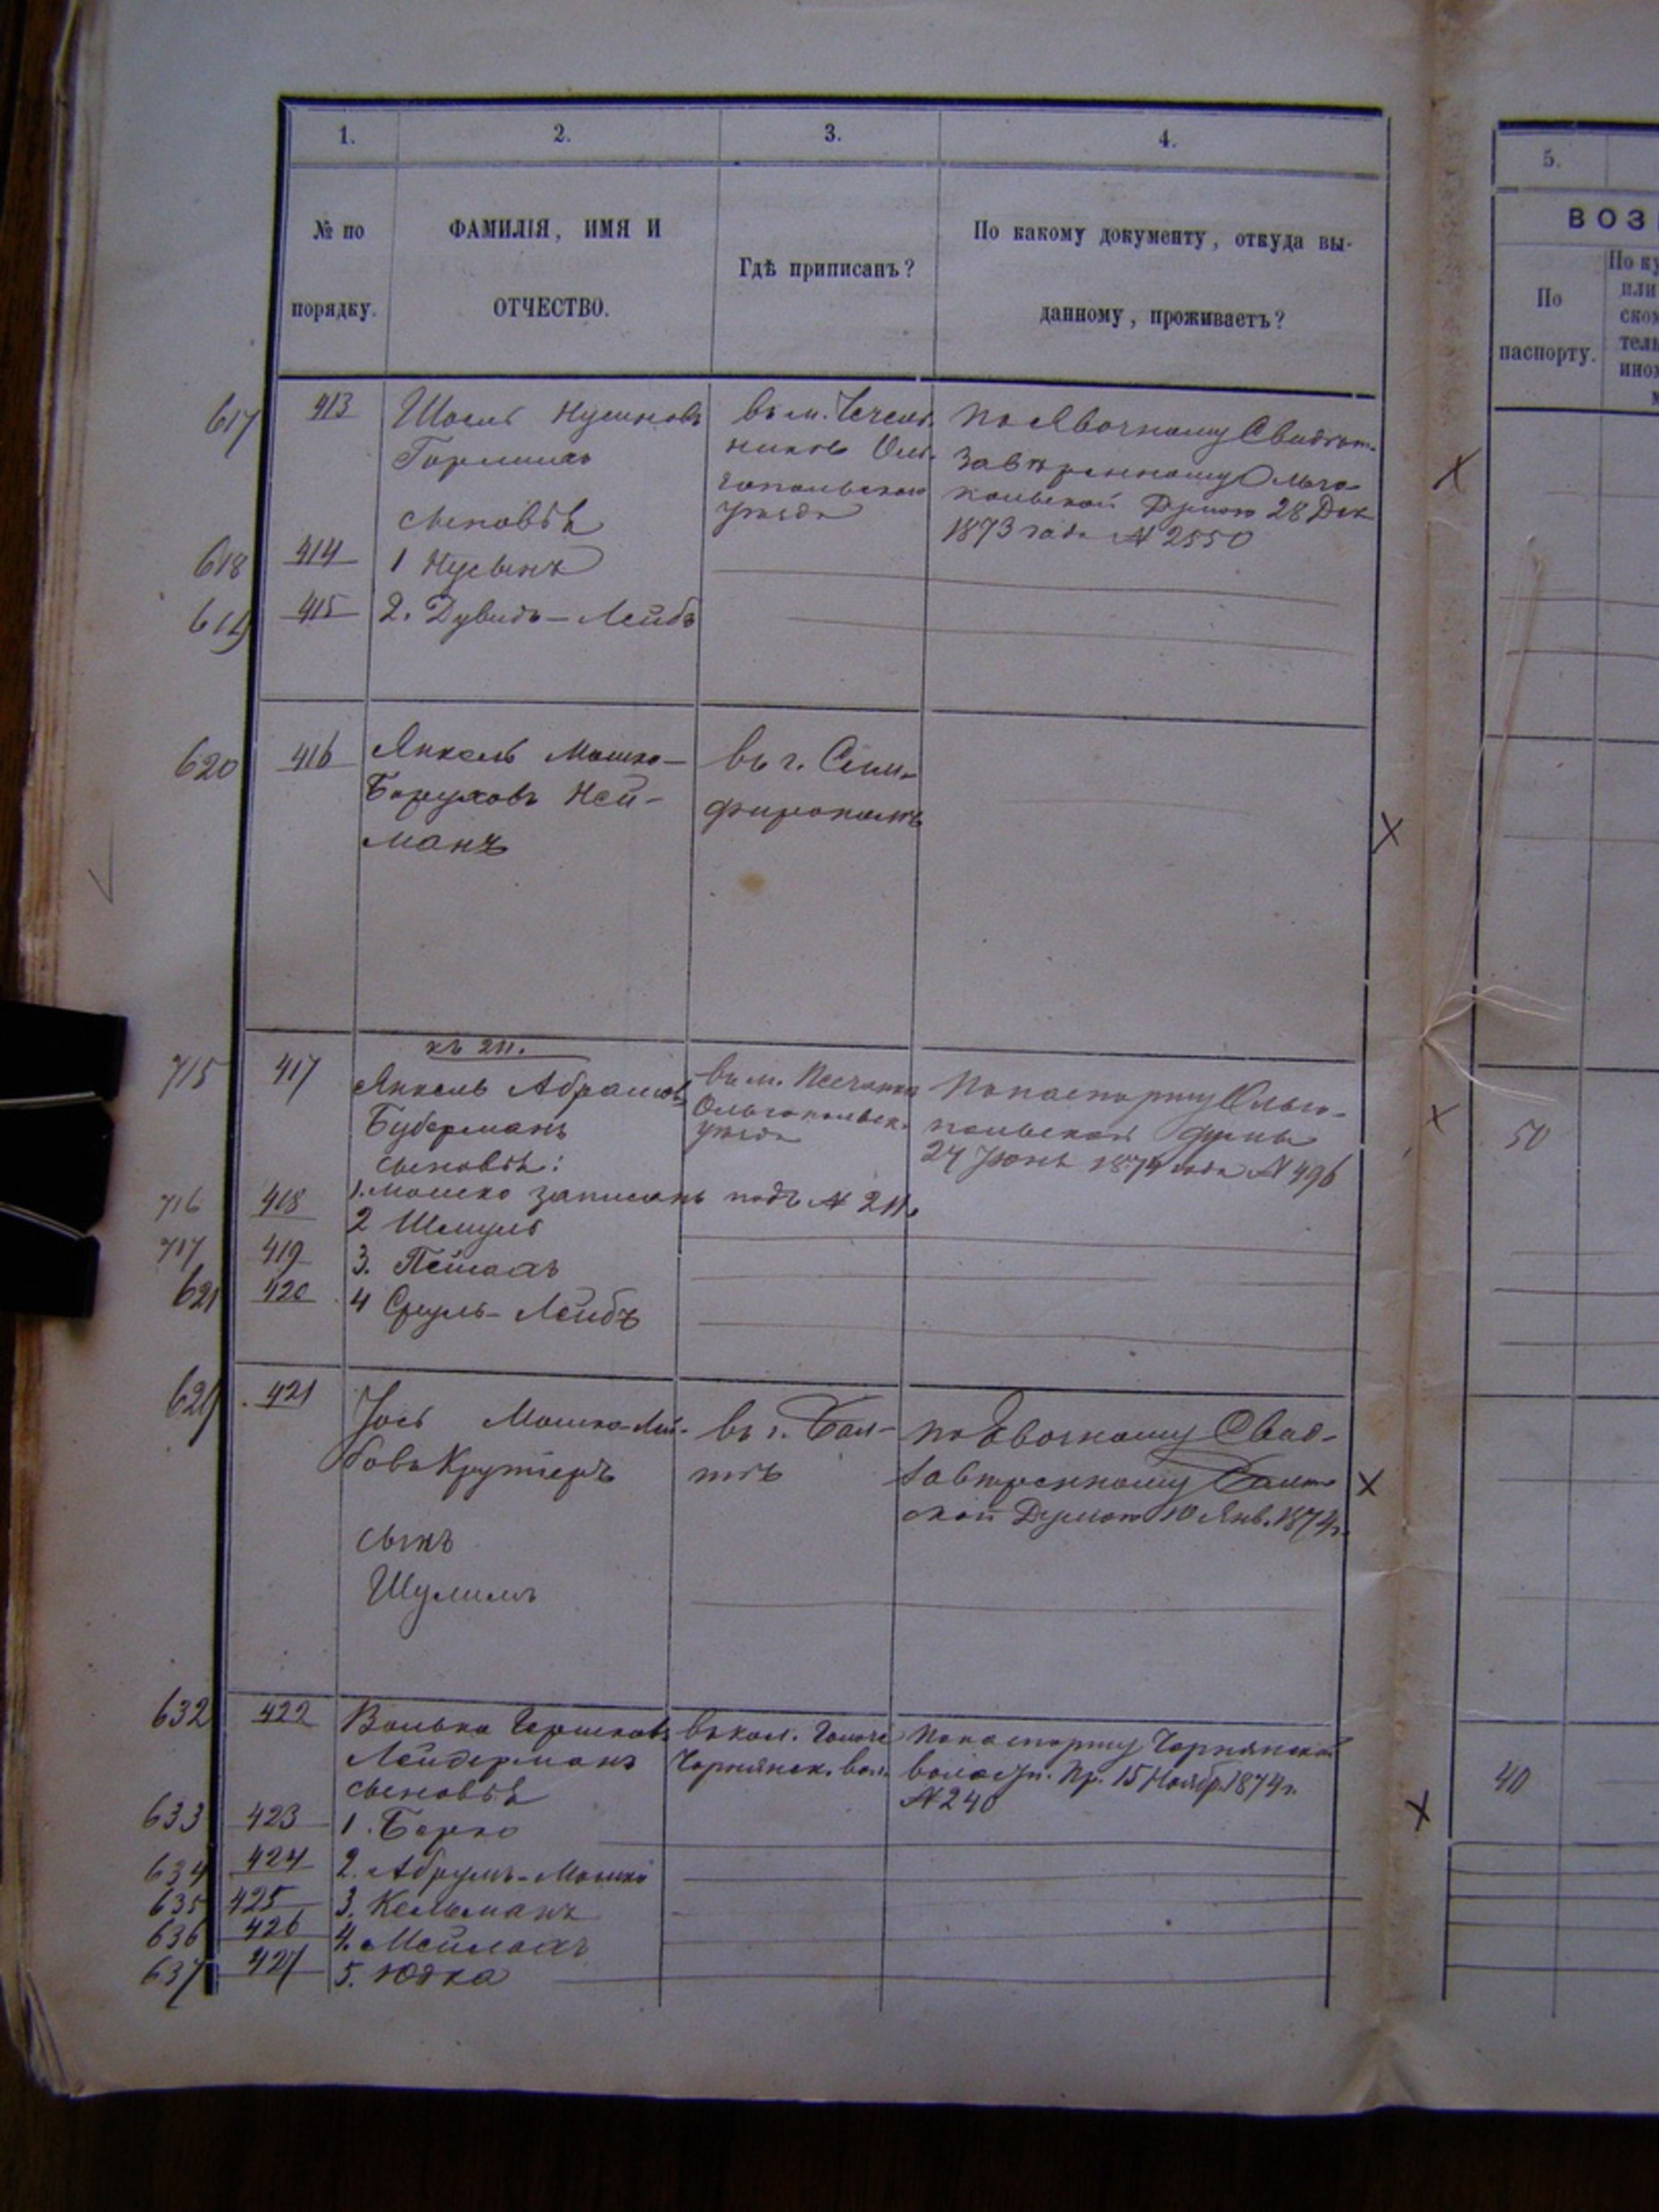 1. 2. 3. 4. 5.
№ по порядку.
ФАМИЛІЯ, ИМЯ И
ОТЧЕСТВО.
Гдѣ приписанъ?
По какому документу, откуда вы-
данному, проживаетъ?
ВОЗ
По
паспорту.
По ку
или
ском
тель
617 413
Горшихъ
сыновья
въ м. Чечель-
никѣ Оль-
гопольскаго
уѣзда
По Явочному Свидѣт.
завѣренному Ольго-
польской Думою 28 Дек
1873 года № 2550
618 414 1 Нусынъ
619 415 2. Дувидъ-Лейбъ
620 416 Янкель Мошко-
Боруховъ Ней-
манъ
въ г. Сим-
ферополѣ
къ 211.
715 417 Янкель Абрамов.
Буберманъ
сыновья:
въ м. Песчанка
Ольгопольск.
уѣзда
По паспорту Ольго-
польской Думы
24 Іюня 1874 года № 496
50
1. Мошко записанъ подъ № 211.
716 418 2 Шмуль
717 419 3. Пейсахъ
621 420 4 Сруль-Лейбъ
421 Іось Мошко-Лей-
бовъ Крутеръ
въ г. Бал-
тѣ
по Явочному Свид-
завѣренному Балт
ской Думою 10 Янв. 1874 г.
сынъ
Шулимъ
632 422 Волько Гершковъ
Лейдерманъ
сыновья
въ кол.
Чернянск. вол.
По паспорту Чернянской
волост. Пр. 15 Ноябр. 1874 г.
№ 240
40
633 423 1. Берко
634 424 2. Абрумъ-Мошко
635 425 3. Кельманъ
636 426 4. Мейлахъ
637 427 5. Юдка